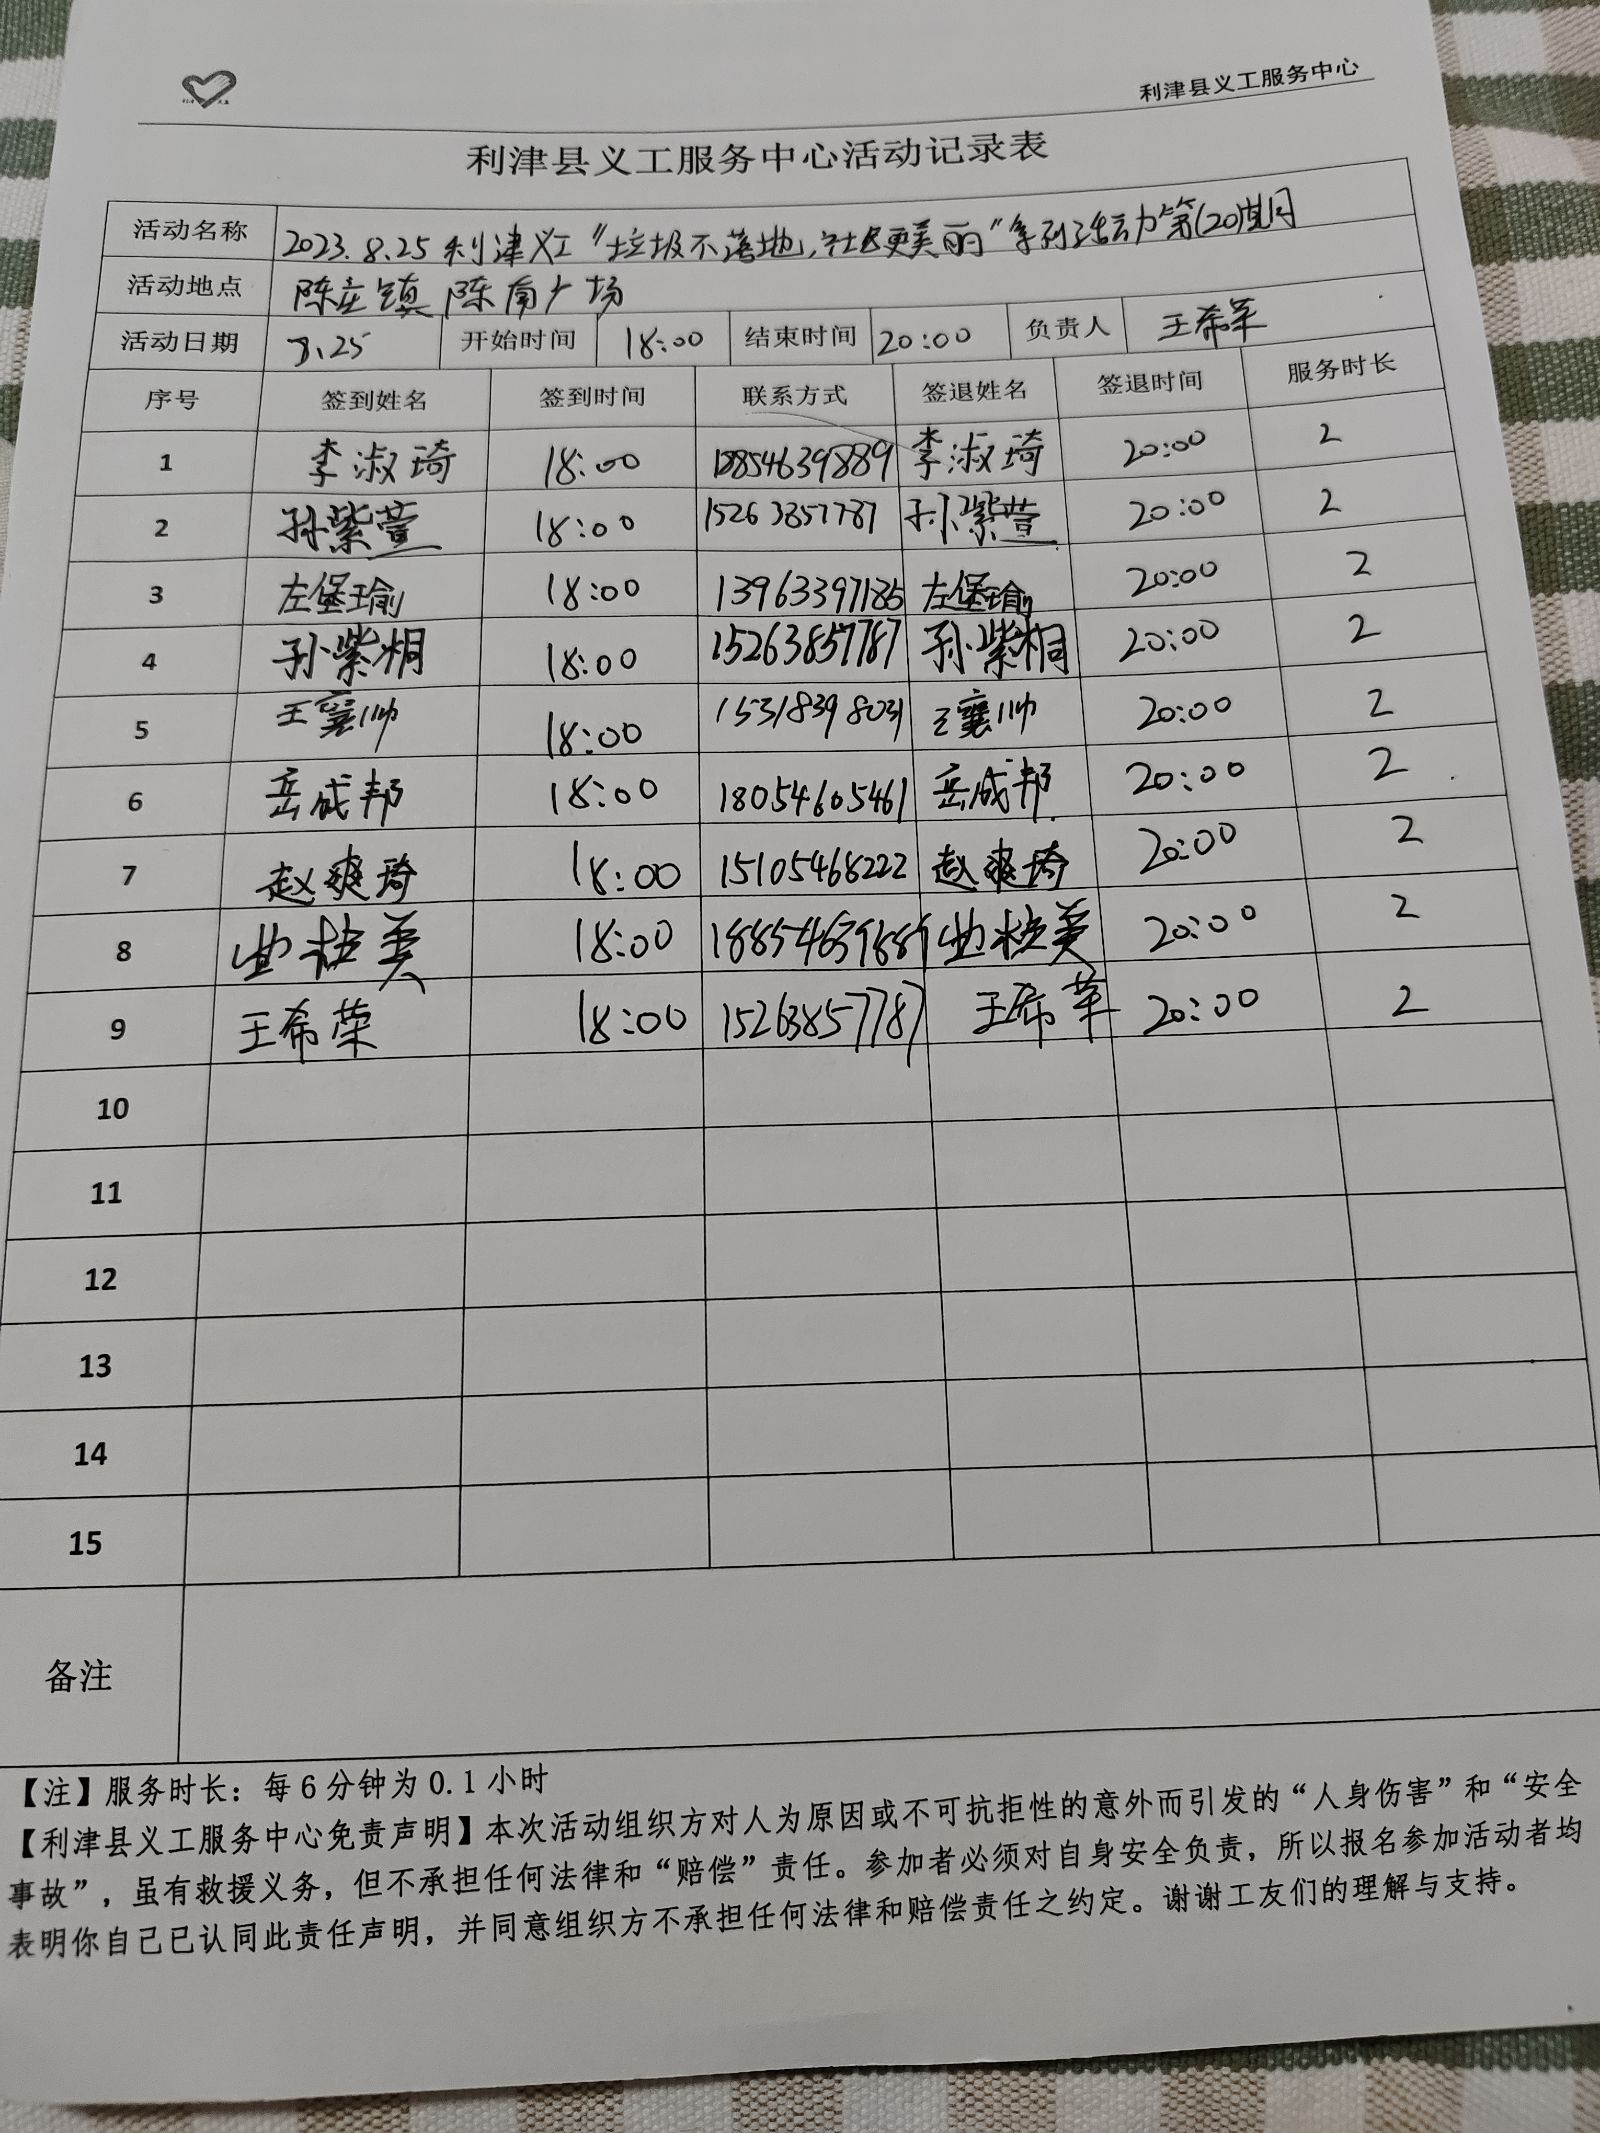 利津县义工服务中心
利津县义工服务中心活动记录表
活动名称 2023.8.25利津义工“垃圾不落地,社区更美丽”系列活动第(20)期
活动地点 陈庄镇陈南广场
活动日期 8.25 开始时间 18:00 结束时间 20:00 负责人 王希荣
序号 签到姓名 签到时间 联系方式 签退姓名 签退时间 服务时长
1 李淑琦 18:00 18854639889 李淑琦 20:00 2
2 孙紫萱 18:00 15263857787 孙紫萱 20:00 2
3 左堡瑜 18:00 13963397185 左堡瑜 20:00 2
4 孙紫桐 18:00 15263857787 孙紫桐 20:00 2
5 王襄帅 18:00 15318398031 王襄帅 20:00 2
6 岳成邦 18:00 18054605461 岳成邦 20:00 2
7 赵爽琦 18:00 15105468222 赵爽琦 20:00 2
8 曲桂美 18:00 18854639889 曲桂美 20:00 2
9 王希荣 18:00 15263857787 王希荣 20:00 2
10
11
12
13
14
15
备注
【注】服务时长：每6分钟为0.1小时
【利津县义工服务中心免责声明】本次活动组织方对人为原因或不可抗拒性的意外而引发的“人身伤害”和“安全
事故”，虽有救援义务，但不承担任何法律和“赔偿”责任。参加者必须对自身安全负责，所以报名参加活动者均
表明你自己已认同此责任声明，并同意组织方不承担任何法律和赔偿责任之约定。谢谢工友们的理解与支持。